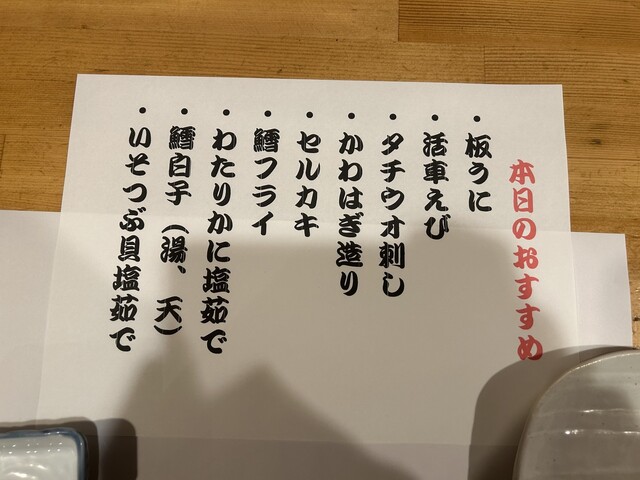 本日のおすすめ
・板うに
・活車えび
・タチウオ刺し
・かわはぎ造り
・セルカキ
・鱈フライ
・わたりかに塩茹で
・鱈白子（湯、天）
・いそつぶ貝塩茹で